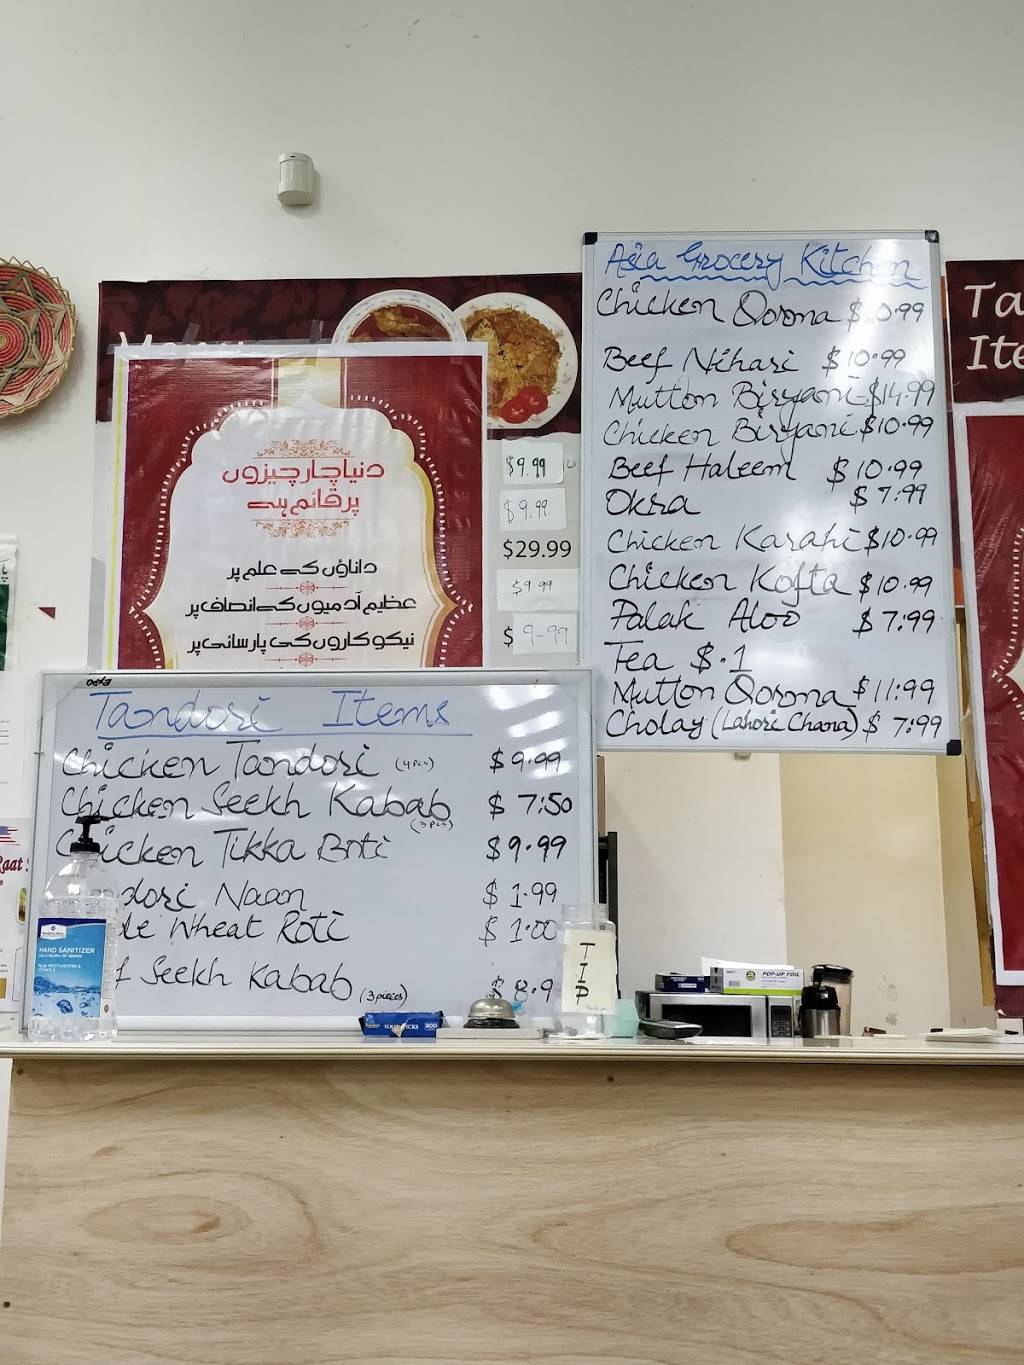 Asia Grocery Kitchen
Chicken Qorma $10.99
Beef Nihari $10.99
Mutton Biryani $14.99
Chicken Biryani $10.99
Beef Haleem $10.99
Okra $7.99
Chicken Karahi $10.99
Chicken Kofta $10.99
Palak Aloo $7.99
Tea $.1
Mutton Qorma $11.99
Cholay (Lahori Chana) $7.99
دنیا چار چیزوں
پر قائم ہے
داناؤں کے علم پر
عظیم آدمیوں کے انصاف پر
نیکو کاروں کی پارسائی پر
$9.99
$9.99
$29.99
$9.99
$9-99
Ta
Ite
EXPO
Tandori Items
Chicken Tandori (4 pcs) $9.99
Chicken Seekh Kabab (3 pcs) $7.50
Chicken Tikka Boti $9.99
dori Naan $1.99
le Wheat Roti $1.00
f Seekh Kabab (3 pieces) $8.9
HAND SANITIZER
TIP
POP-UP FOIL
Raat